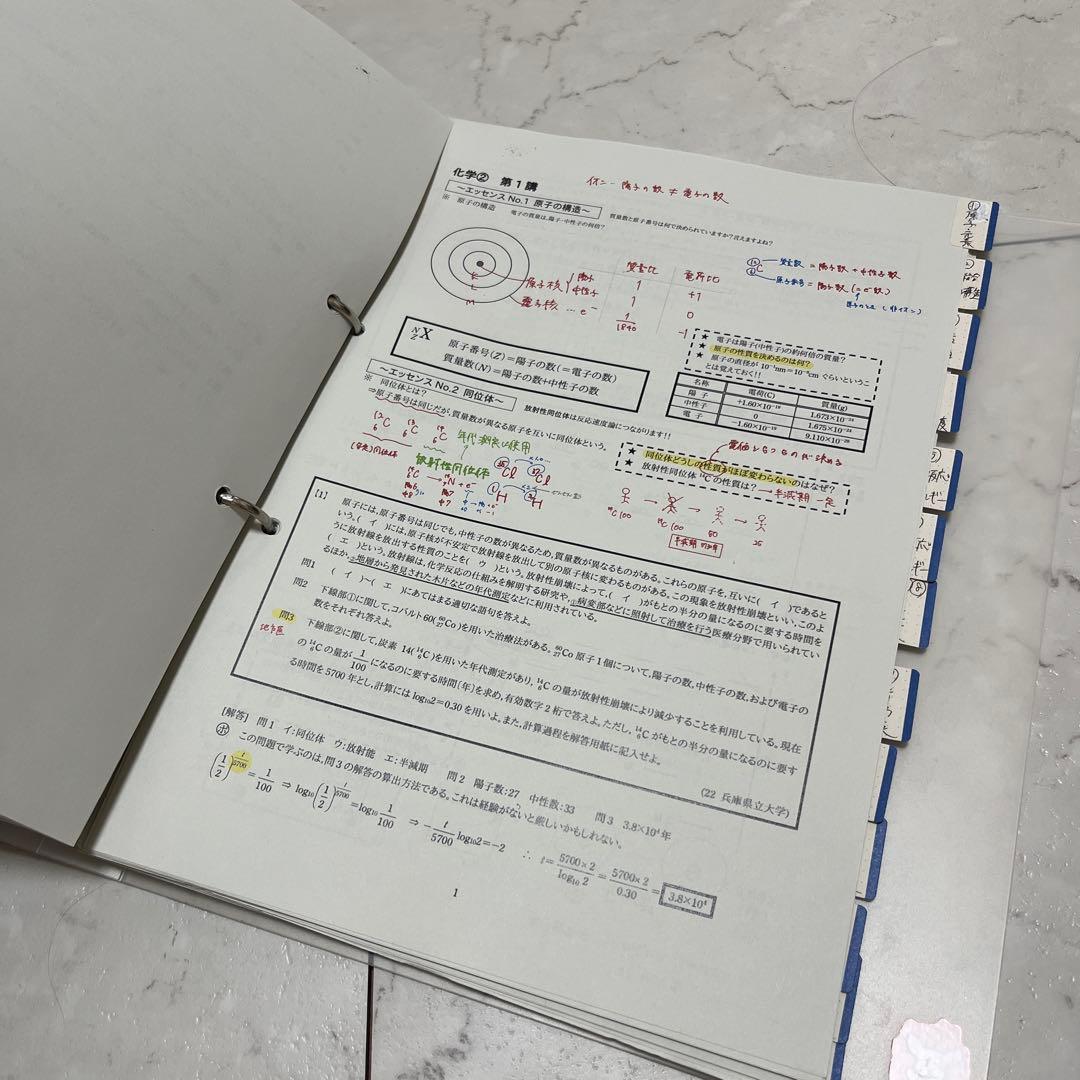 化学② 第1講
イオン… 陽子の数 ≠ 電子の数
～エッセンス No.1 原子の構造～
※ 原子の構造 電子の質量は、陽子・中性子の何倍? 質量数と原子番号は何で決められていますか?言えますよね?
質量比 電荷比
原子核 陽子 1 +1
中性子 1 0
e⁻ 1/1840 -1
K
L
M
質量数 = 陽子数 + 中性子数
原子番号 = 陽子数 (= e⁻数)
N Z X 原子番号(Z)=陽子の数(=電子の数)
質量数(N)=陽子の数+中性子の数
★ 電子は陽子(中性子)の約何倍の質量?
★ 原子の性質を決めるのは何?
★ 原子の直径が 10⁻¹nm=10⁻⁸cm ぐらいということは覚えておく!!
名称 電荷(C) 質量(g)
陽 子 +1.60×10⁻¹⁹ 1.673×10⁻²⁴
中性子 0 1.675×10⁻²⁴
電 子 −1.60×10⁻¹⁹ 9.110×10⁻²⁸
～エッセンス No.2 同位体～
※ 同位体とは? 放射性同位体は反応速度論につながります!!
⇒原子番号は同じだが、質量数が異なる原子を互いに同位体という。
¹²₆C ¹³₆C ¹⁴₆C 年代測定に使用
放射性同位体
★ 同位体どうしの性質がほぼ変わらないのはなぜ?
★ 放射性同位体 ¹⁴C の性質は? → 半減期 一定
¹⁴C 100 ¹⁴C 100 50 25
[1]
原子には、原子番号は同じでも、中性子の数が異なるため、質量数が異なるものがある。これらの原子を、互いに( イ )であるという。( イ )には、原子核が不安定で放射線を放出して別の原子核に変わるものがある。この現象を放射性崩壊といい、このように放射線を放出する性質のことを( ウ )という。放射性崩壊によって、( イ )がもとの半分の量になるのに要する時間を( エ )という。放射線は、化学反応の仕組みを解明する研究や、①病変部などに照射して治療を行う医療分野で用いられているほか、②地層から発見された木片などの年代測定などに利用されている。
問1 ( イ )～( エ )にあてはまる適切な語句を答えよ。
問2 下線部①に関して、コバルト60(⁶⁰₂₇Co)を用いた治療法がある。⁶⁰₂₇Co 原子1個について、陽子の数、中性子の数、および電子の数をそれぞれ答えよ。
問3 下線部②に関して、炭素 14(¹⁴₆C)を用いた年代測定があり、¹⁴₆C の量が放射性崩壊により減少することを利用している。現在の ¹⁴₆C の量が 1/100 になるのに要する時間〔年〕を求め、有効数字2桁で答えよ。ただし、¹⁴₆C がもとの半分の量になるのに要する時間を 5700 年とし、計算には log₁₀2=0.30 を用いよ。また、計算過程を解答用紙に記入せよ。
(22 兵庫県立大学)
[解答] 問1 イ:同位体 ウ:放射能 エ:半減期 問2 陽子数:27 中性数:33 問3 3.8×10⁴年
㋭ この問題で学ぶのは、問3の解答の算出方法である。これは経験がないと厳しいかもしれない。
(1/2)^(t/5700) = 1/100 ⇒ log₁₀(1/2)^(t/5700) = log₁₀ 1/100 ⇒ −t/5700 log₁₀2 = −2 ∴ t = 5700×2/log₁₀2 = 5700×2/0.30 = 3.8×10⁴
1